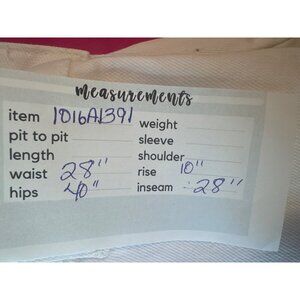 measurements
item 1016A1391
weight
pit to pit
sleeve
length
shoulder
waist 28"
rise 10"
hips 40"
inseam 28"